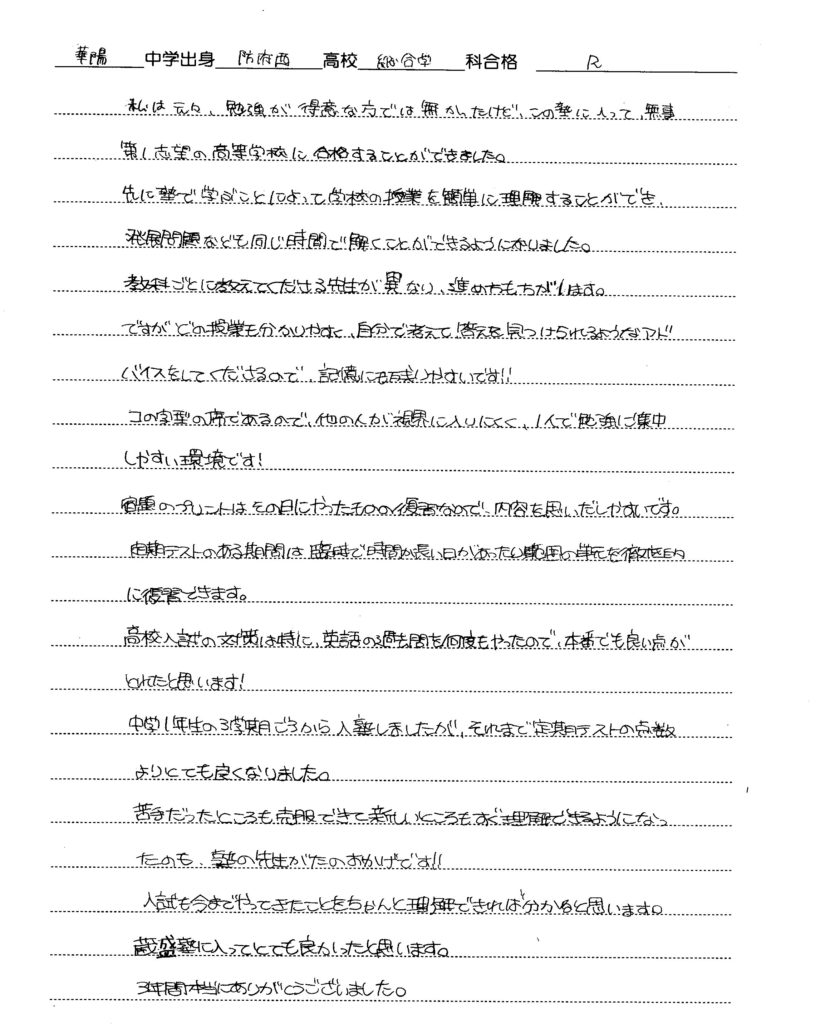 華陽 中学出身 防府西 高校 総合学 科合格 R
私は元々、勉強が得意な方では無かったけど、この塾に入って、無事
第1志望の高等学校に合格することができました。
先に塾で学ぶことによって学校の授業を簡単に理解することができ、
発展問題なども同じ時間で解くことができるようになりました。
教科ごとに教えてくださる先生が異なり、進め方もちがいます。
ですがどの授業も分かりやすく、自分で考えて答えを見つけられるようなアド
バイスをしてくださるので、記憶にも残りやすいです!!
コの字型の席であるので、他の人が視界に入りにくく、1人で勉強に集中
しやすい環境です!
宿題のプリントはその日にやったものの復習なので、内容を思いだしやすいです。
定期テストのある期間は臨時で時間が長い日があったり範囲の単元を徹底的
に復習できます。
高校入試の対策は特に、英語の過去問を何度もやったので、本番でも良い点が
とれたと思います!
中学1年生の3学期ごろから入塾しましたが、それまで定期テストの点数
よりとても良くなりました。
苦手だったところも克服できて新しいところもすぐ理解できるようになっ
たのも、塾の先生がたのおかげです!!
入試も今までやってきたことをちゃんと理解できれば分かると思います。
蔵盛塾に入ってとても良かったと思います。
3年間本当にありがとうございました。